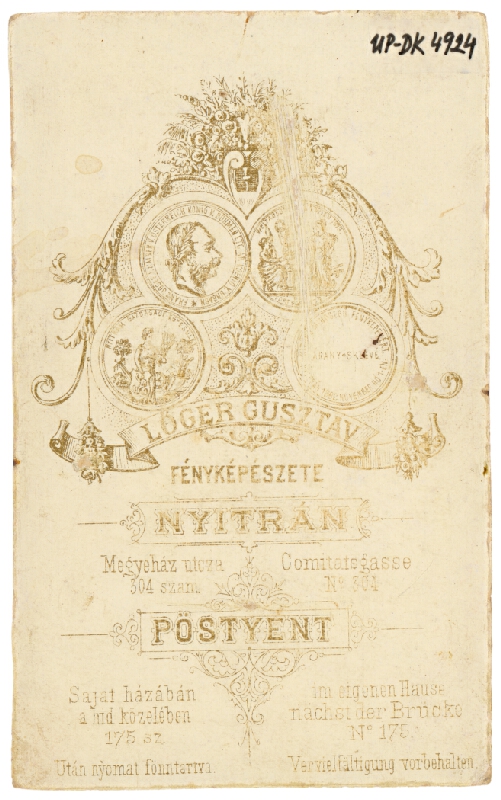 UP-DK 4924
LŐGER GUSZTÁV
FÉNYKÉPÉSZETE
NYITRÁN
Megyeház utcza
304 szám
Comitatsgasse
Nº 304
PÖSTYENT
Saját házában
a hid közelében
175 sz.
im eigenen Hause
nächst der Brücke
Nº 175.
Után nyomat fenntartva.
Vervielfältigung vorbehalten.